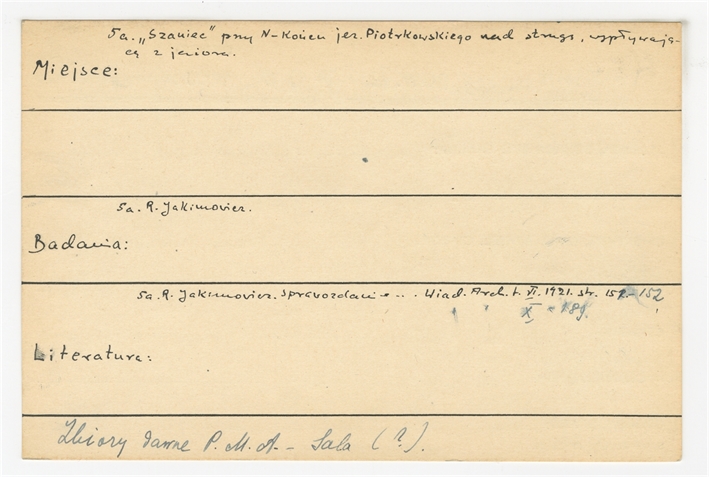 5a. „Szaniec" przy N-Końcu jez. Piotrkowskiego nad strugą, wypływają-
cą z jeziora.
Miejsce:
5a. R. Jakimowicz.
Badania:
5a. R. Jakimowicz. Sprawozdanie... Wiad. Arch. t. VI. 1921. str. 151-152
X, " 189.
Literatura:
Zbiory dawne P. M. A. - Sala (?).